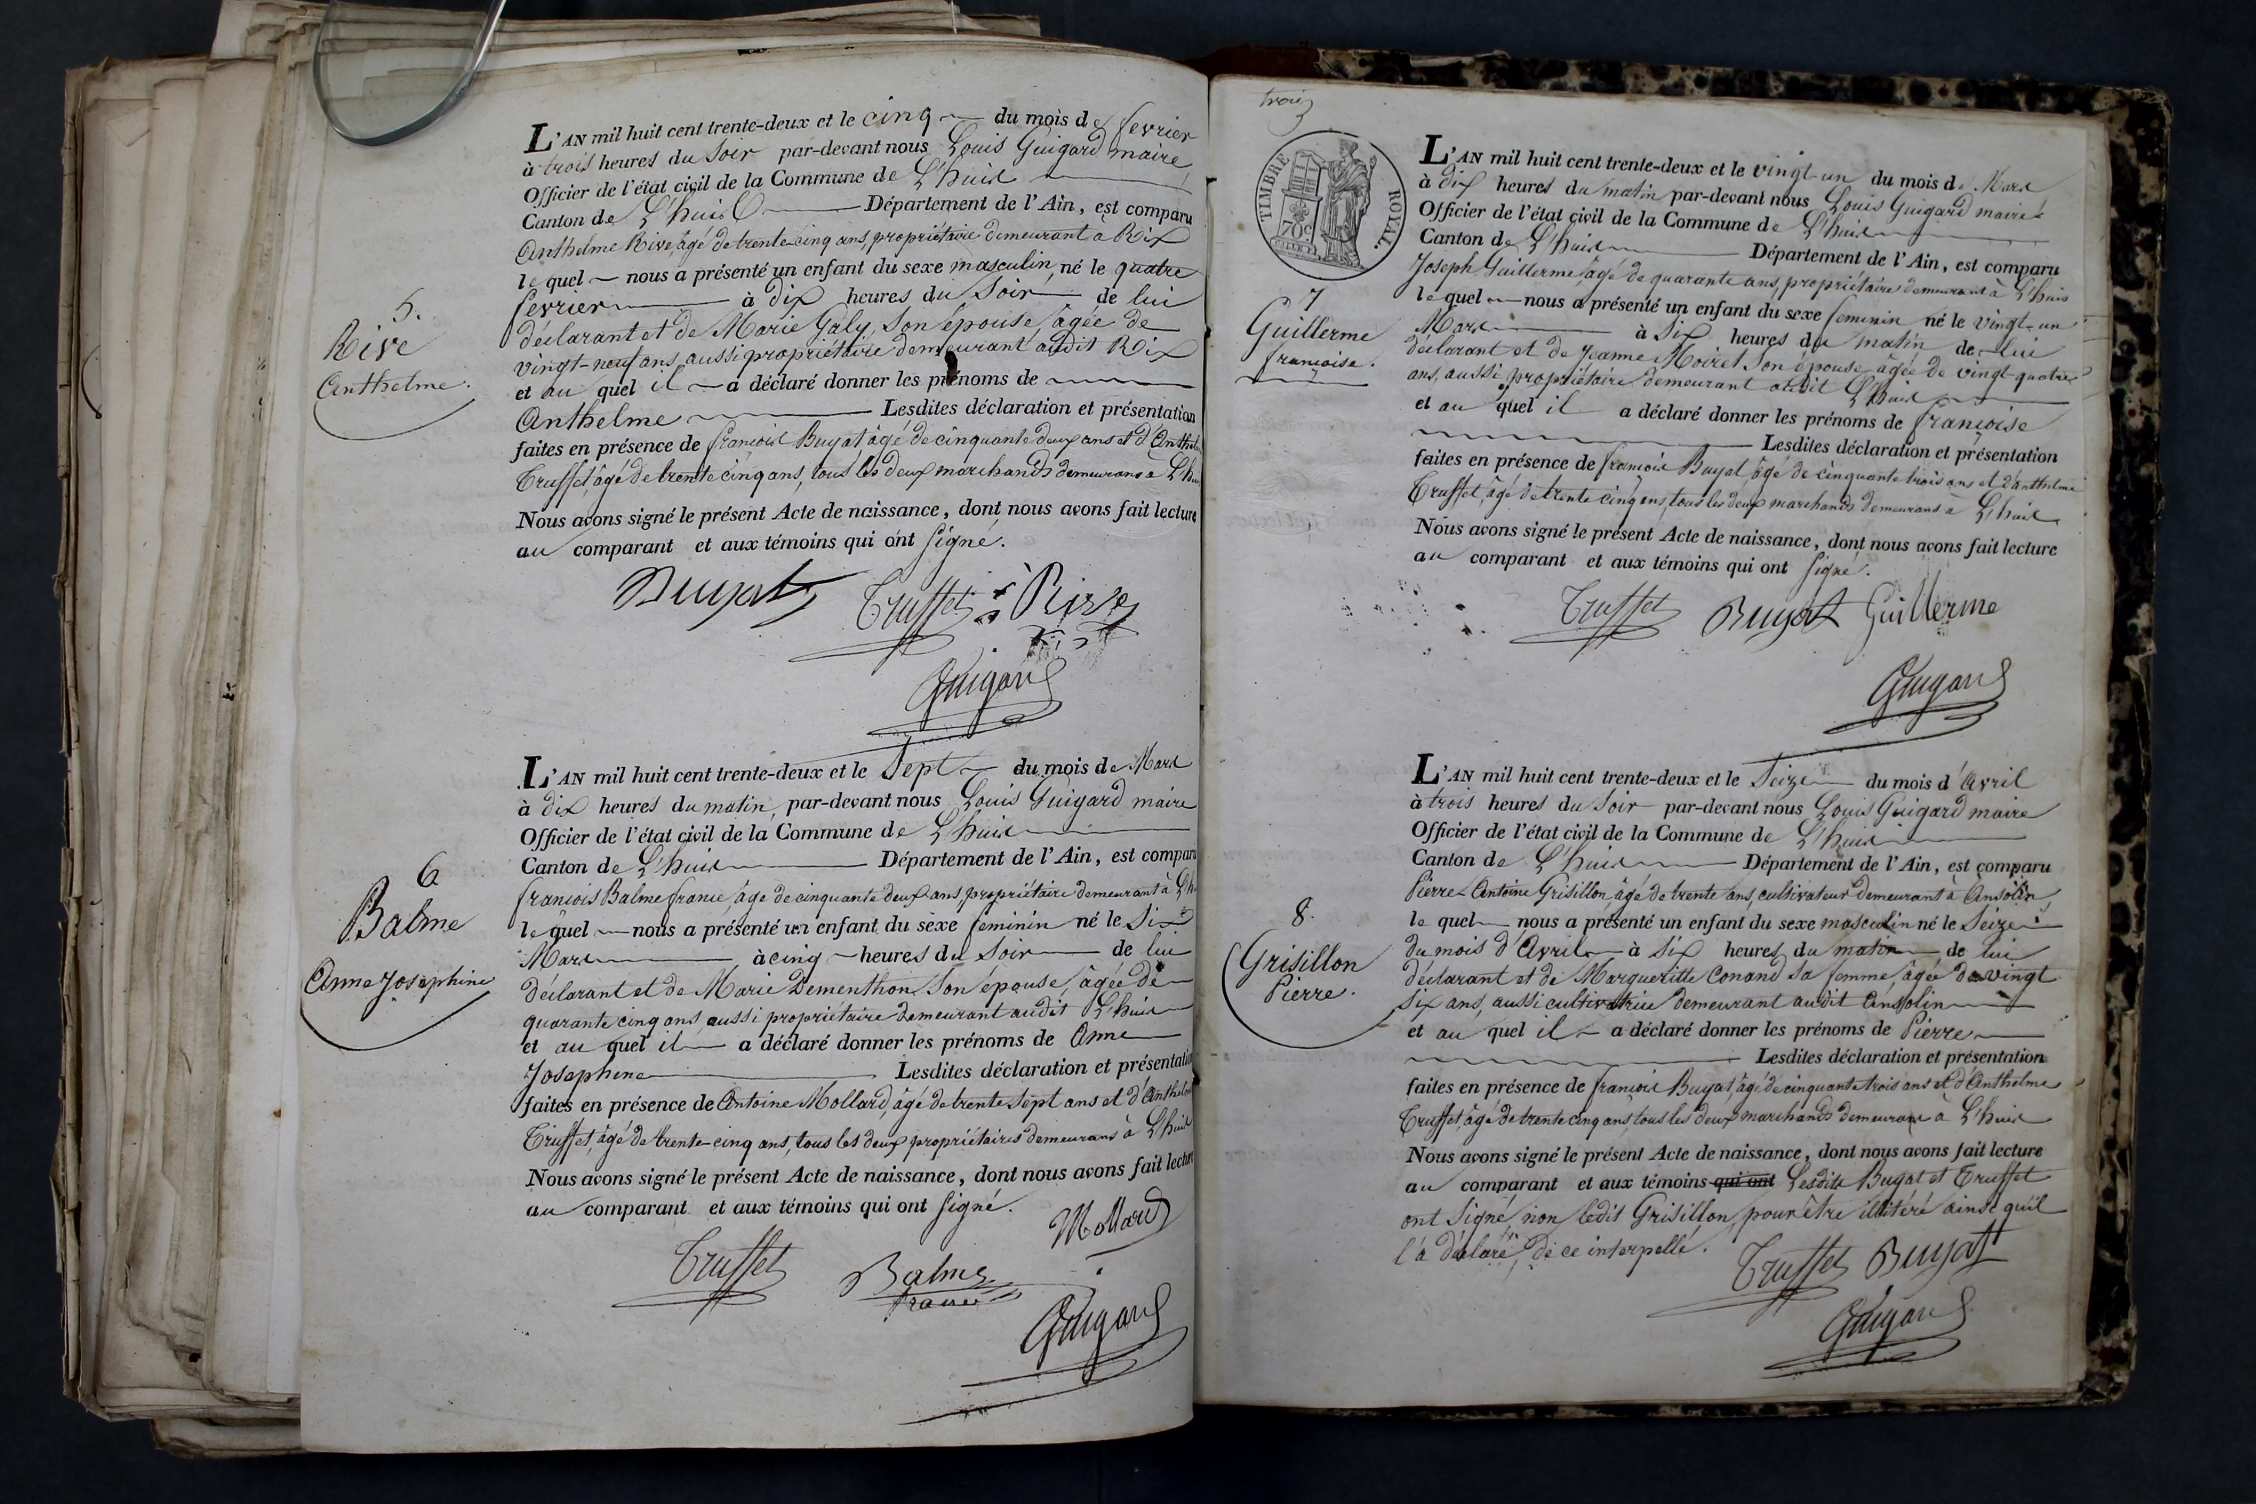 L'AN mil huit cent trente-deux et le cinq du mois de fevrier
à trois heures du Soir par-devant nous Louis Guigard maire
Officier de l'état civil de la Commune de L'huis
Canton de L'huis Département de l'Ain, est comparu
Anthelme Rive, âgé de trente cinq ans, propriétaire demeurant à Rix
le quel nous a présenté un enfant du sexe masculin, né le quatre
fevrier à dix heures du Soir de lui
déclarant et de Marie Galy, Son épouse, âgée de
vingt-neuf ans, aussi propriétaire demeurant audit Rix
et au quel il a déclaré donner les prénoms de
Anthelme Lesdites déclaration et présentation
faites en présence de françois Buyat âgé de cinquante deux ans et d'Anthelm
Truffet, âgé de trente cinq ans, tous les deux marchands demeurans à L'hu
Nous avons signé le présent Acte de naissance, dont nous avons fait lecture
au comparant et aux témoins qui ont Signé.
5.
Rive
Anthelme.
Buyat Truffet Rive
Guigard
L'AN mil huit cent trente-deux et le Sept du mois de Mars
à dix heures du matin, par-devant nous Louis Guigard maire
Officier de l'état civil de la Commune de L'huis
Canton de L'huis Département de l'Ain, est comparu
françois Balme france, âge de cinquante deux ans, propriétaire demeurant à L'h
le quel nous a présenté un enfant du sexe feminin né le Six
Mars à cinq heures du Soir de lui
déclarant et de Marie Dementhon Son épouse, âgée de
quarante cinq ans aussi propriétaire demeurant audit L'huis
et au quel il a déclaré donner les prénoms de Anne
Josephine Lesdites déclaration et présentation
faites en présence de Antoine Mollard, âgé de trente Sept ans et d'Anthelme
Truffet, âgé de trente-cinq ans, tous les deux propriétaires demeurans à L'huis
Nous avons signé le présent Acte de naissance, dont nous avons fait lecture
au comparant et aux témoins qui ont Signé.
6
Balme
Anne Josephine
Mollard
Truffet Balme
france
Guigard
trois
TIMBRE ROYAL.
70c
L'AN mil huit cent trente-deux et le vingt-un du mois de Mars
à dix heures du matin par-devant nous Louis Guigard maire
Officier de l'état civil de la Commune de L'huis
Canton de L'huis Département de l'Ain, est comparu
Joseph Guillerme, âgé de quarante ans, propriétaire demeurant à L'huis
le quel nous a présenté un enfant du sexe feminin né le vingt-un
Mars à Six heures du matin de lui
déclarant et de Jeanne Moiret Son épouse âgée de vingt quatre
ans, aussi propriétaire demeurant audit L'huis
et au quel il a déclaré donner les prénoms de françoise
Lesdites déclaration et présentation
faites en présence de françois Buyat, âgé de cinquante trois ans et d'anthelme
Truffet, âgé de trente cinq ans, tous les deux marchands demeurans à L'huis
Nous avons signé le présent Acte de naissance, dont nous avons fait lecture
au comparant et aux témoins qui ont Signé.
7
Guillerme
françoise.
Truffet Buyat Guillerme
Guigard
L'AN mil huit cent trente-deux et le Seize du mois d'Avril
à trois heures du Soir par-devant nous Louis Guigard maire
Officier de l'état civil de la Commune de L'huis
Canton de L'huis Département de l'Ain, est comparu
Pierre-Antoine Grisillon âgé de trente ans, cultivateur demeurant à Ansolin,
le quel nous a présenté un enfant du sexe masculin né le Seize
du mois d'Avril à Six heures du matin de lui
déclarant et de Margueritte Conand Sa femme, âgée de vingt
Six ans, aussi cultivatrice demeurant audit Ansolin
et au quel il a déclaré donner les prénoms de Pierre
Lesdites déclaration et présentation
faites en présence de françois Buyat, âgé de cinquante trois ans et d'Anthelme
Truffet, âgé de trente cinq ans, tous les deux marchands demeurans à L'huis
Nous avons signé le présent Acte de naissance, dont nous avons fait lecture
au comparant et aux témoins qui ont Lesdits Buyat et Truffet
ont Signé, non ledit Grisillon, pour être illitéré ainsi qu'il
l'a déclaré, de ce interpellé.
8.
Grisillon
Pierre.
Truffet Buyat
Guigard